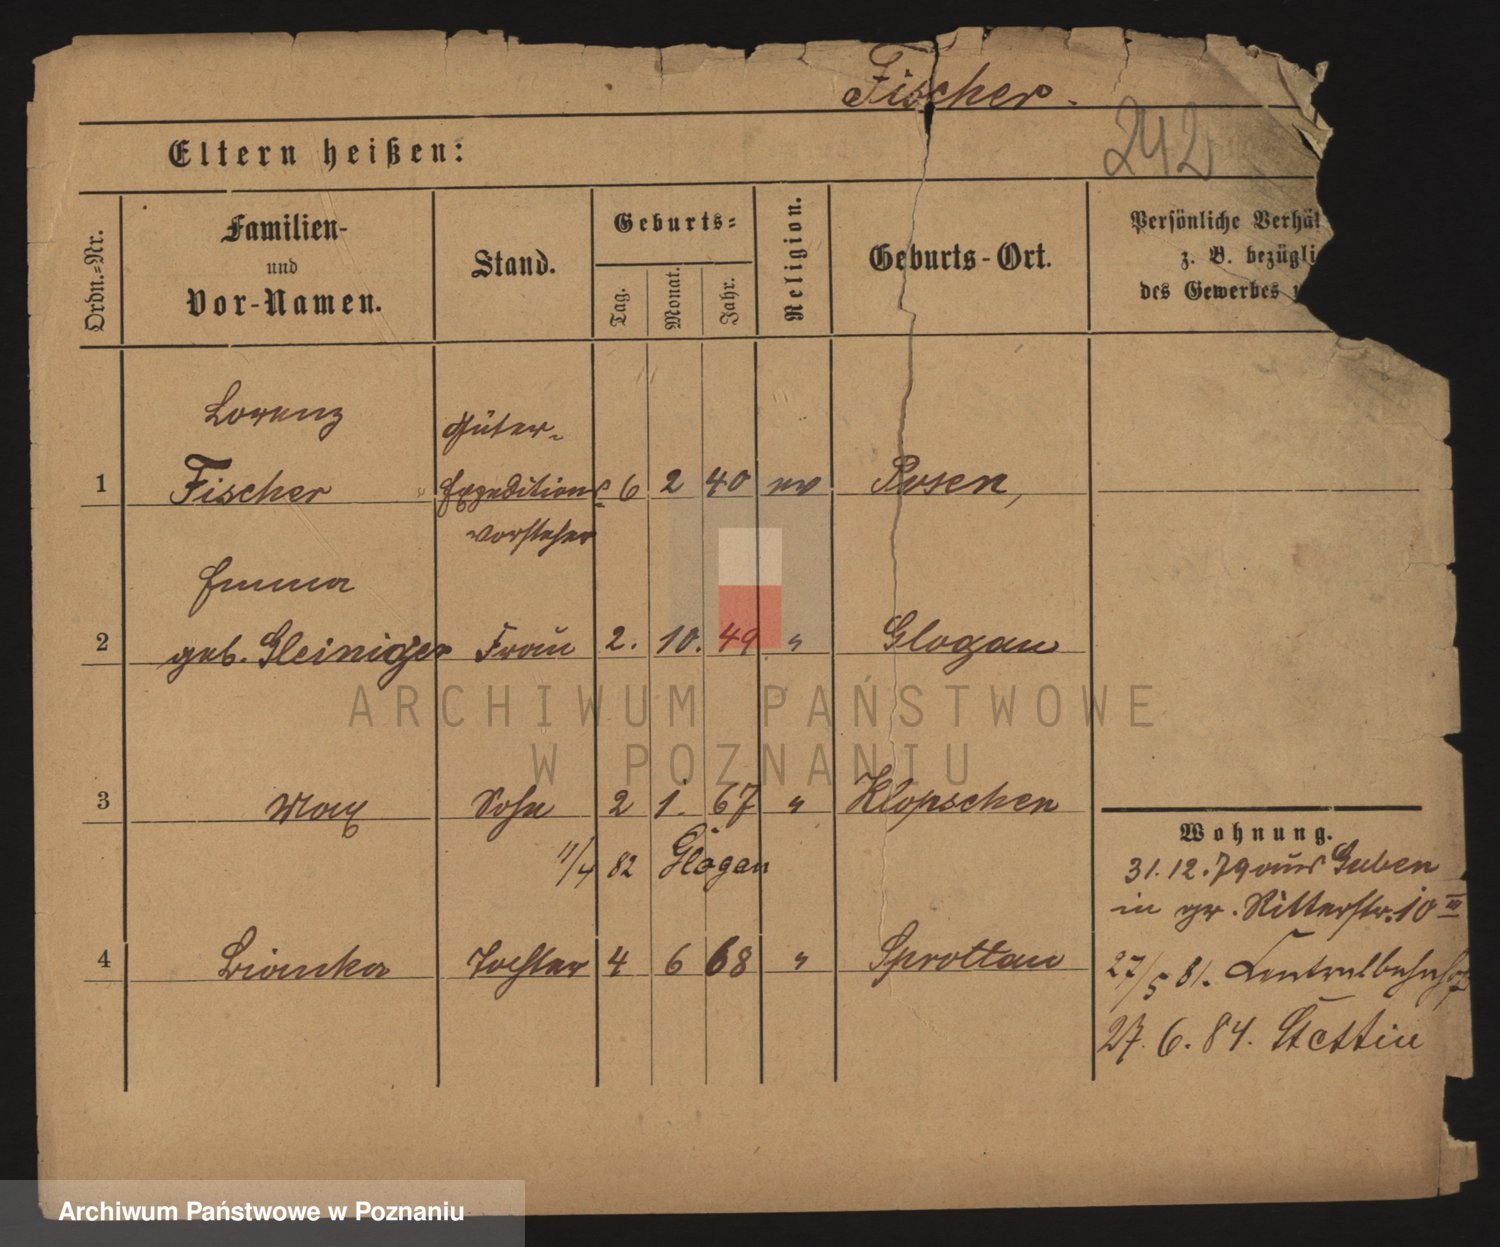 Fischer.
242
Eltern heißen:
Ordn.=Nr.
Familien-
und
Vor-Namen.
Stand.
Geburts=
Tag.
Monat.
Jahr.
Religion.
Geburts-Ort.
Persönliche Verhäl
z. B. bezügli
des Gewerbes
Lorenz
Güter-
1 Fischer Expeditions 6 2 40 ev Posen,
vorsteher
Emma
2 geb. Gleiniger Frau 2. 10. 49 " Glogau
ARCHIWUM PAŃSTWOWE
W POZNANIU
3 Max Sohn 2 1. 67 " Klopschen
11/4 82 Glogau
4 Bianka Tochter 4 6 68 " Sprottau
Wohnung.
31.12.79 aus Guben
in gr. Ritterstr. 10 III
27/5 81. Centralbahnhof
27.6.84. Stettin
Archiwum Państwowe w Poznaniu